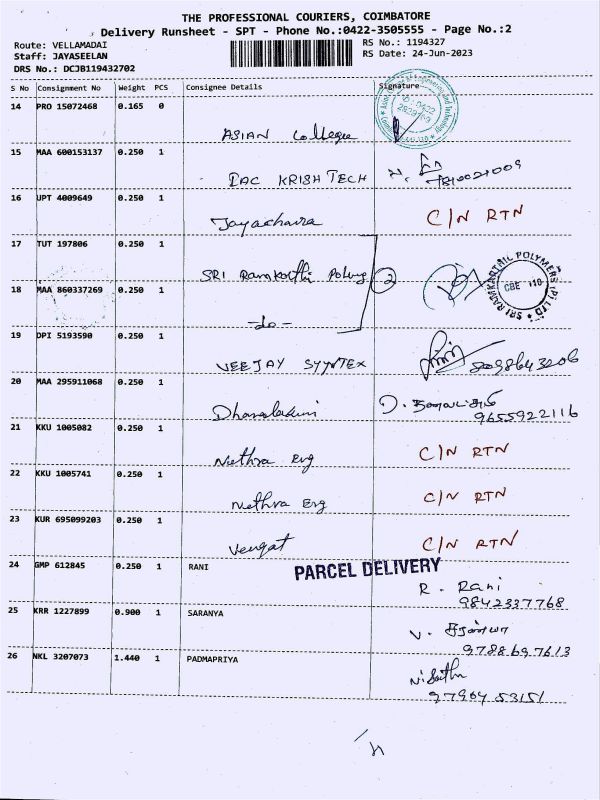 THE PROFESSIONAL COURIERS, COIMBATORE
Delivery Runsheet - SPT - Phone No.:0422-3505555 - Page No.:2
Route: VELLAMADAI
RS No.: 1194327
Staff: JAYASEELAN
RS Date: 24-Jun-2023
DRS No.: DCJB119432702
S No Consignment No Weight PCS Consignee Details Signature
14 PRO 15072468 0.165 0
ASIAN College
15 MAA 600153137 0.250 1
IAC KRISH TECH
16 UPT 4009649 0.250 1
C/N RTN
17 TUT 197806 0.250 1
SRI Ramkarthi Polmy
2
SRI RAMKARTHIC POLYMERS (P) LTD
CBE
18 MAA 860337269 0.250 1
-do-
19 DPI 5193590 0.250 1
VEEJAY SYNTEX
20 MAA 295911068 0.250 1
9655922116
21 KKU 1005082 0.250 1
Nethra Eng
C/N RTN
22 KKU 1005741 0.250 1
Nethra Eng
C/N RTN
23 KUR 695099203 0.250 1
Vengat
C/N RTN
24 GMP 612845 0.250 1 RANI
PARCEL DELIVERY
R. Rani
9842337768
25 KRR 1227899 0.900 1 SARANYA
V. சரண்யா
9788697613
26 NKL 3207073 1.440 1 PADMAPRIYA
97904 53151